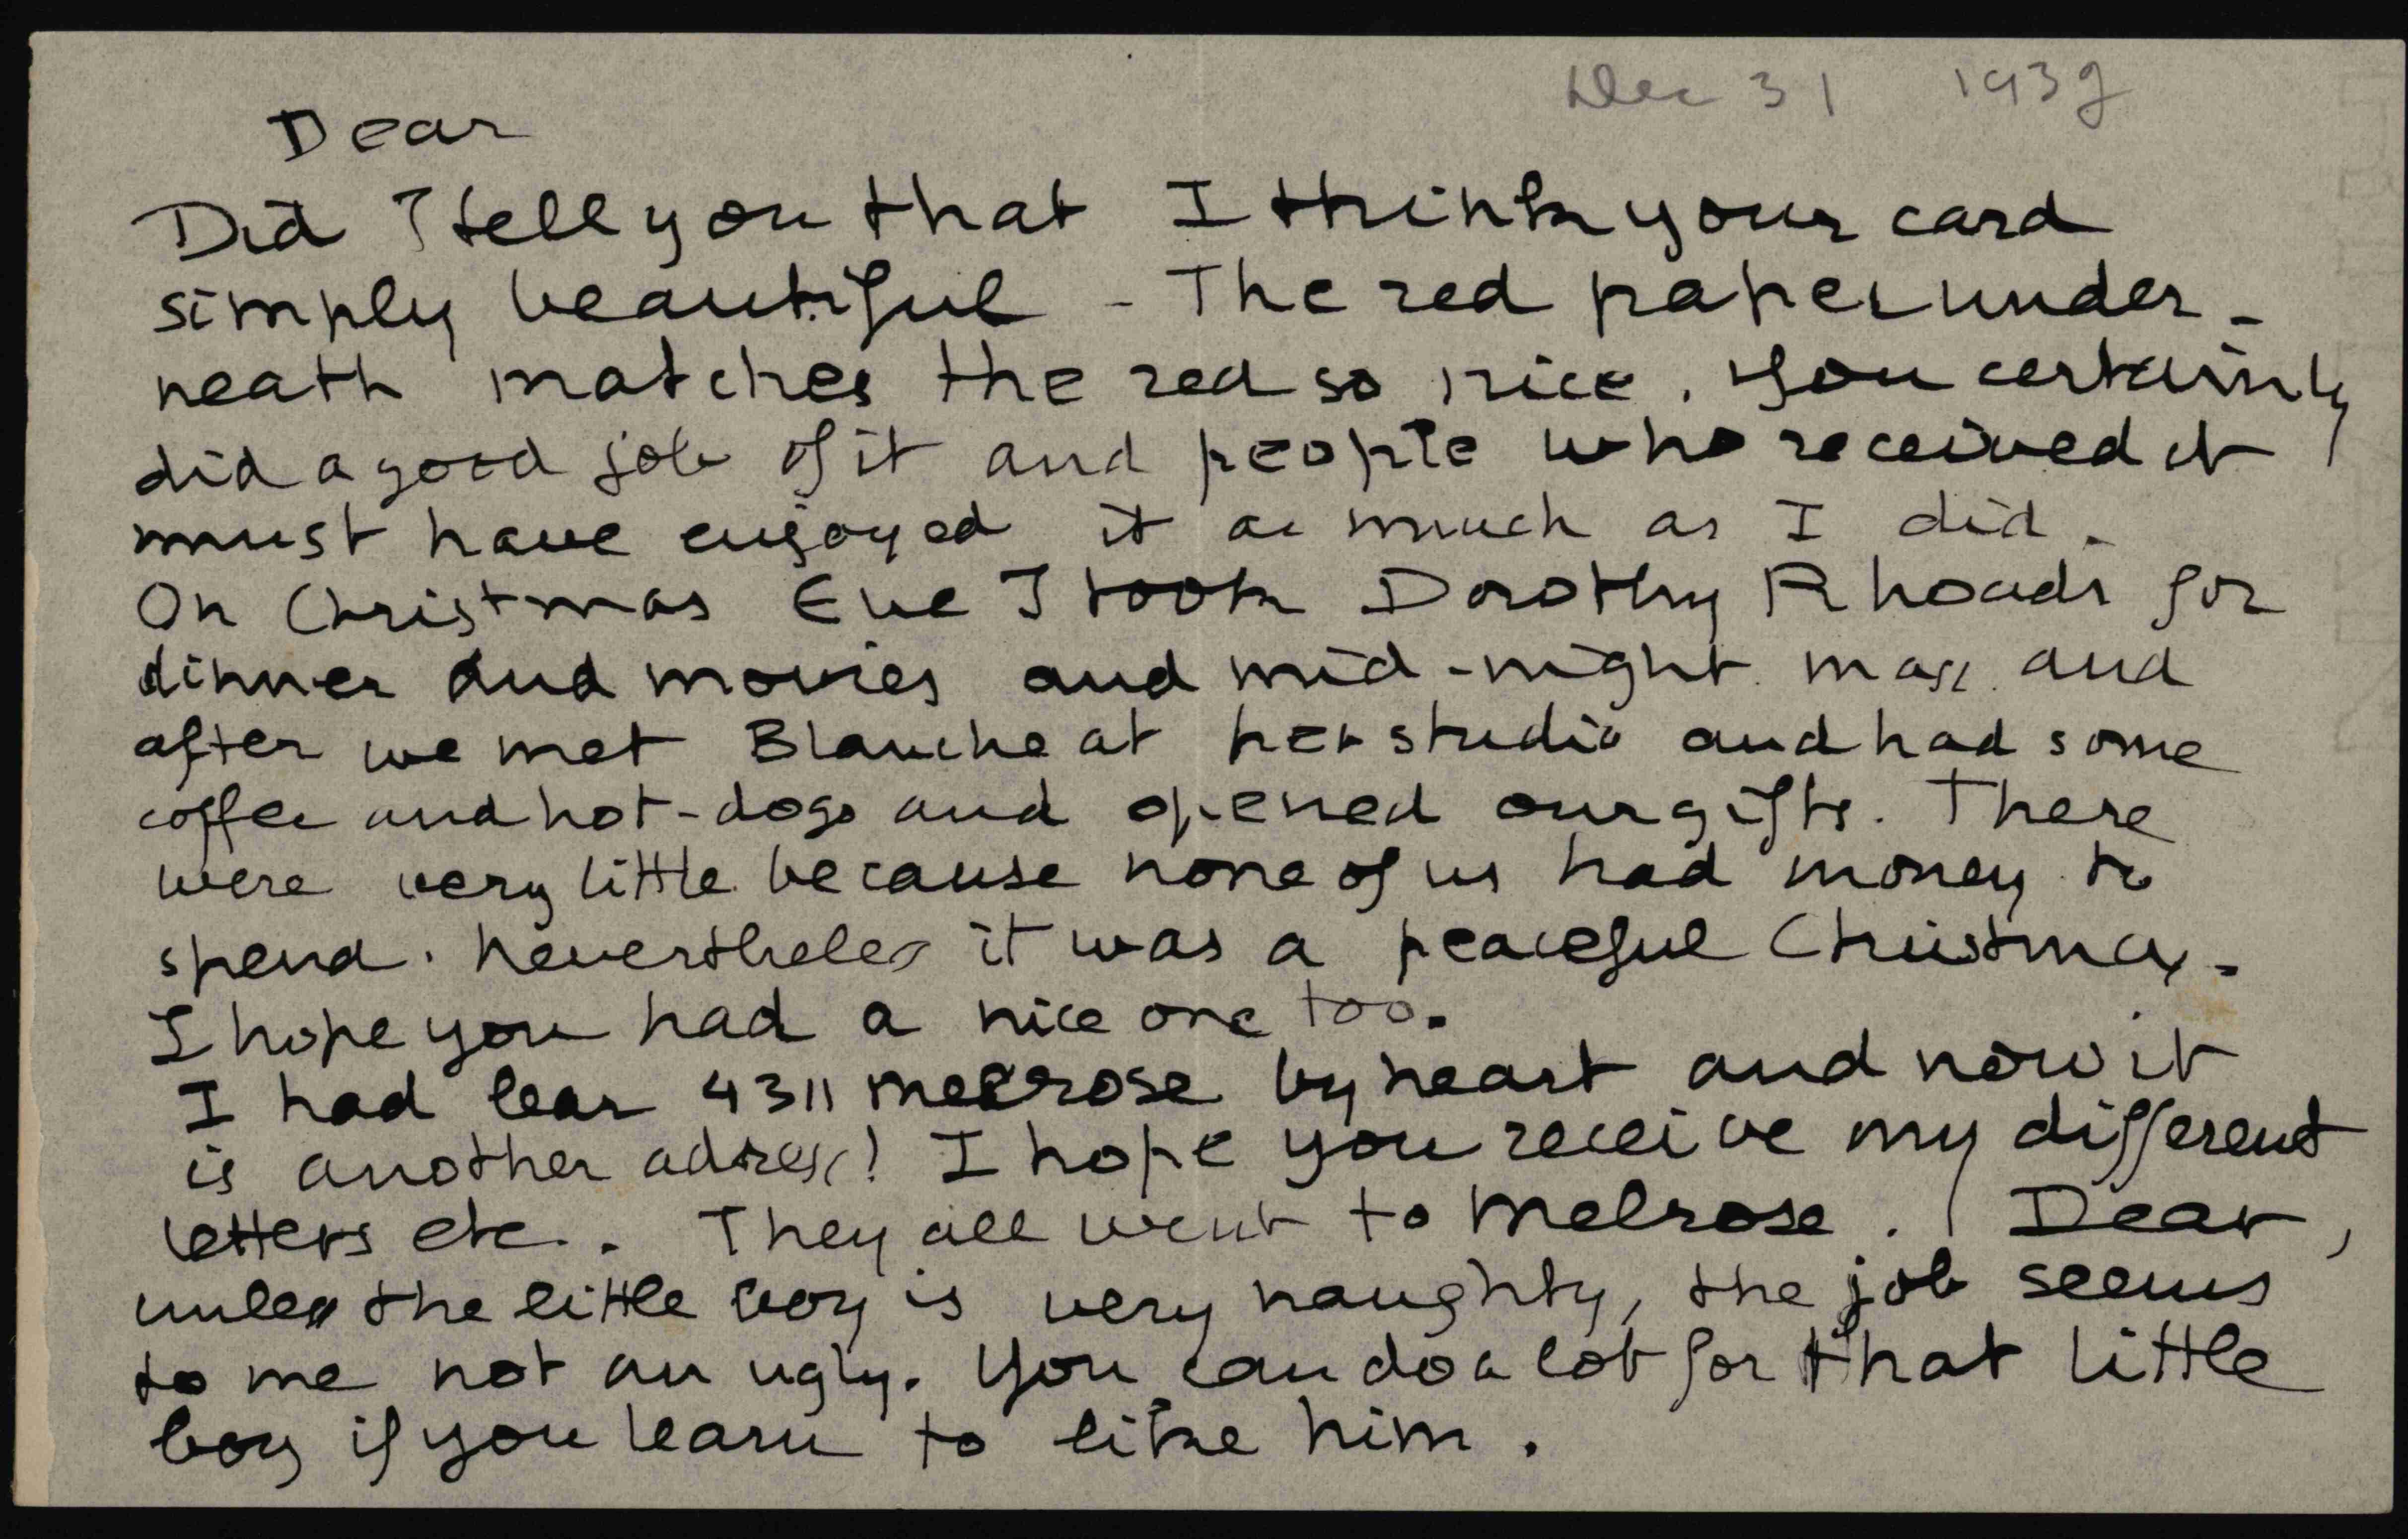 Dec 31 1939
Dear
Did I tell you that I think your card
simply beautiful - The red paper under-
neath matches the red so nice. You certainly
did a good job of it and people who received it
must have enjoyed it as much as I did.
On Christmas Eve I took Dorothy Rhoads for
dinner and movies and mid-night mass and
after we met Blanche at her studio and had some
coffee and hot-dogs and opened our gifts. There
were very little because none of us had money to
spend. nevertheless it was a peaceful Christmas.
I hope you had a nice one too.
I had lear 4311 melrose by heart and now it
is another adress! I hope you receive my different
letters etc.. They all went to Melrose. | Dear,
unless the little boy is very naughty, the job seems
to me not an ugly. You can do a lot for that little
boy if you learn to like him.